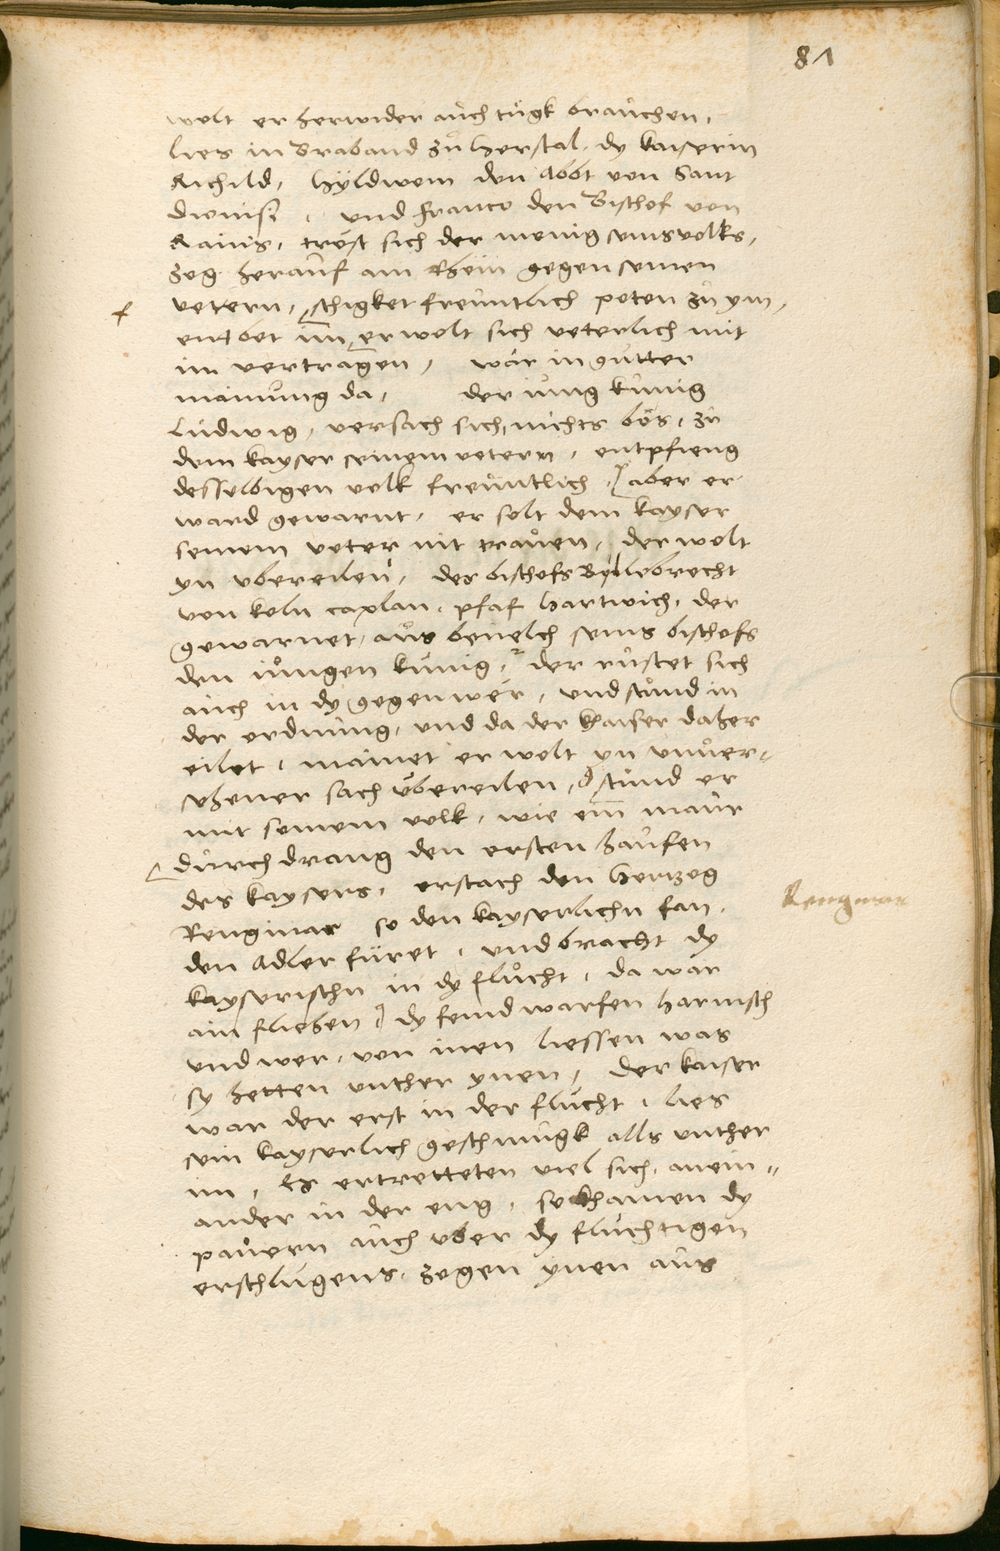 81
wolt er herwider auch tügk brauchen,
lies in Braband zů herstal dy kaiserin
Richild, hyldwem den Abbt von Sant
Dionisi, und franco den Bischof von
Rainis, tröst sich der menig seins volks,
zog herauf am Rhein gegen seinen
vetern, schigket freuntlich poten zů ym,
entbot im, er wolt sich veterlich mit
im vertragen, wär in gutter
mainung da, der iung künig
Ludwig, versach sich nichts bös, zů
dem kayser seinem vetern, entpfieng
desselbigen volk freuntlich, aber er
ward gewarnt, er solt dem kayser
seinem veter nit trauen, der wolt
yn ubereilen, des bischofs Byllebrecht
von koln caplan, pfaf hartwich, der
gewarnet, aus bevelch seins bischofs
den iungen künig, der rüstet sich
auch in dy gegenwer, und stund in
der ordnung, und da der kaiser daher
eilet, mainet er wolt yn unver-
sehener sach übereilen, stund er
mit seinem volk, wie ein maur
durch drang den ersten haufen
des kaysers, erstach den hertzog
Renginar so den kayserlichn fan,
Renginar
den Adler füret, und bracht dy
kayserischn in dy flucht, da war
ain fliehen, dy feind warfen harnisch
und wer, von inen liessen was
sy hetten unther ynen, der kaiser
war der erst in der flucht, lies
sein kayserlich geschmugk alls unther
im, Es ertretteten viel sich, anein-
ander in der eng, so khamen dy
pauern auch uber dy fluchtigen
erschlugens, zogen ynen aus